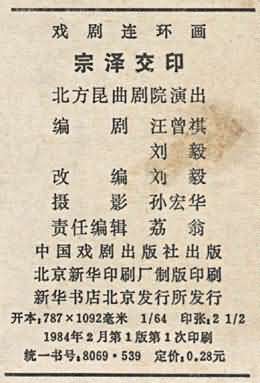 戏剧连环画
宗泽交印
北方昆曲剧院演出
编剧 汪曾祺
刘毅
改编 刘毅
摄影 孙宏华
责任编辑 荔翁
中国戏剧出版社出版
北京新华印刷厂制版印刷
新华书店北京发行所发行
开本:787×1092毫米 1/64 印张:2 1/2
1984年2月第1版第1次印刷
统一书号:8069·539 定价:0.28元